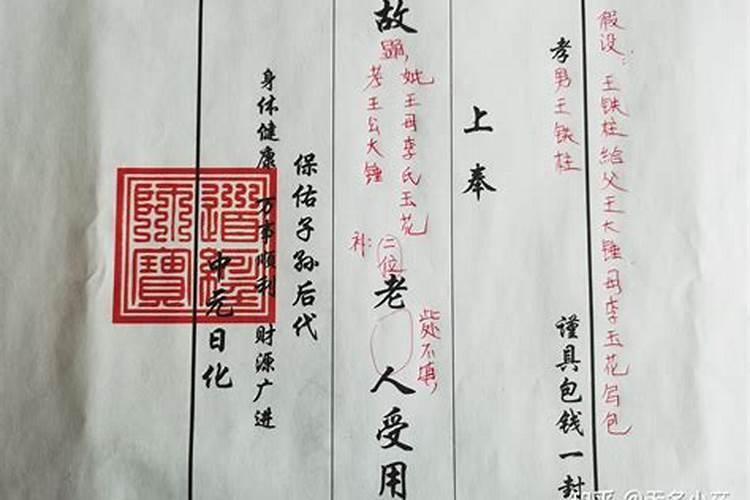 假设：王铁柱给父王大锤母李玉花写包
孝男王铁柱
谨具包钱一封
上奉
故
显，
妣王母李氏玉花
考王公大锤
补：二位
老人受用
此处不填，
保佑子孙后代
身体健康 万事顺利 财源广进
中元日化
道经师寶
知乎